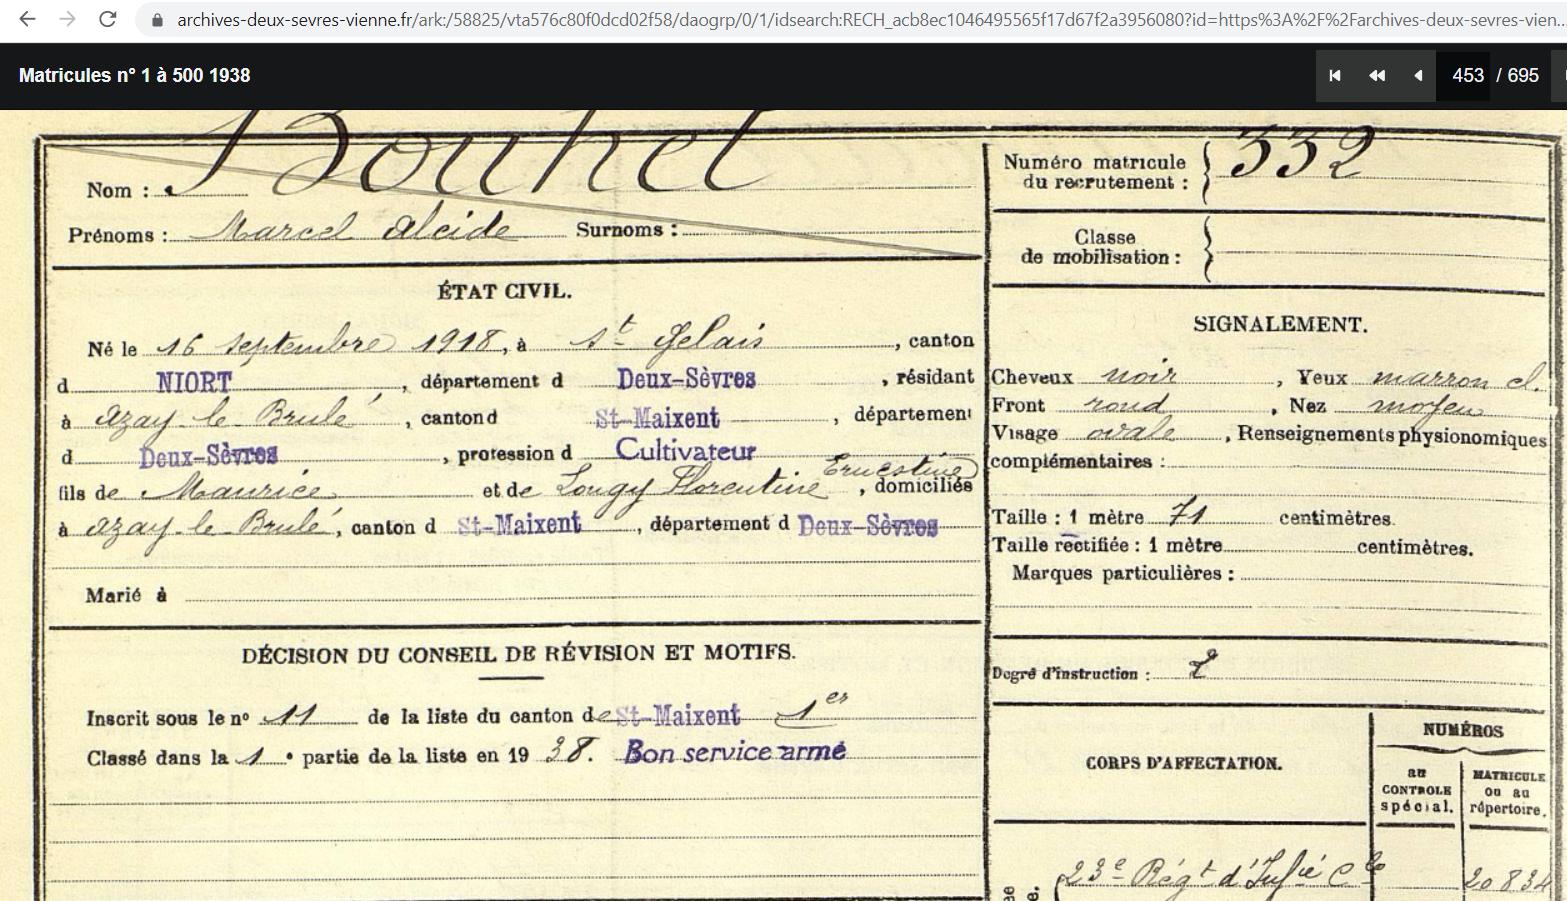 archives-deux-sevres-vienne.fr/ark:/58825/vta576c80f0dcd02f58/daogrp/0/1/idsearch:RECH_acb8ec1046495565f17d67f2a3956080?id=https%3A%2F%2Farchives-deux-sevres-vien...
Matricules n° 1 à 500 1938
453 / 695
Nom : Bouhet
Prénoms : Marcel Alcide Surnoms :
ÉTAT CIVIL.
Né le 16 septembre 1918, à St Gelais, canton
d NIORT, département d Deux-Sèvres, résidant
à Azay-le-Brulé, canton d St-Maixent, département
d Deux-Sèvres, profession d Cultivateur
fils de Maurice et de Lougy Florentine Ernestine, domiciliés
à Azay-le-Brulé, canton d St-Maixent, département d Deux-Sèvres
Marié à
DÉCISION DU CONSEIL DE RÉVISION ET MOTIFS.
Inscrit sous le no 11 de la liste du canton de St-Maixent 1er
Classé dans la 1e partie de la liste en 1938. Bon service armé
Numéro matricule du recrutement : 332
Classe de mobilisation :
SIGNALEMENT.
Cheveux noir, Yeux marron cl.
Front rond, Nez moyen
Visage ovale, Renseignements physionomiques
complémentaires :
Taille : 1 mètre 71 centimètres.
Taille rectifiée : 1 mètre centimètres.
Marques particulières :
Degré d'instruction : 2
CORPS D'AFFECTATION.
NUMÉROS
au CONTROLE spécial.
MATRICULE ou au répertoire.
23e Régt d'Infie Cle 20834